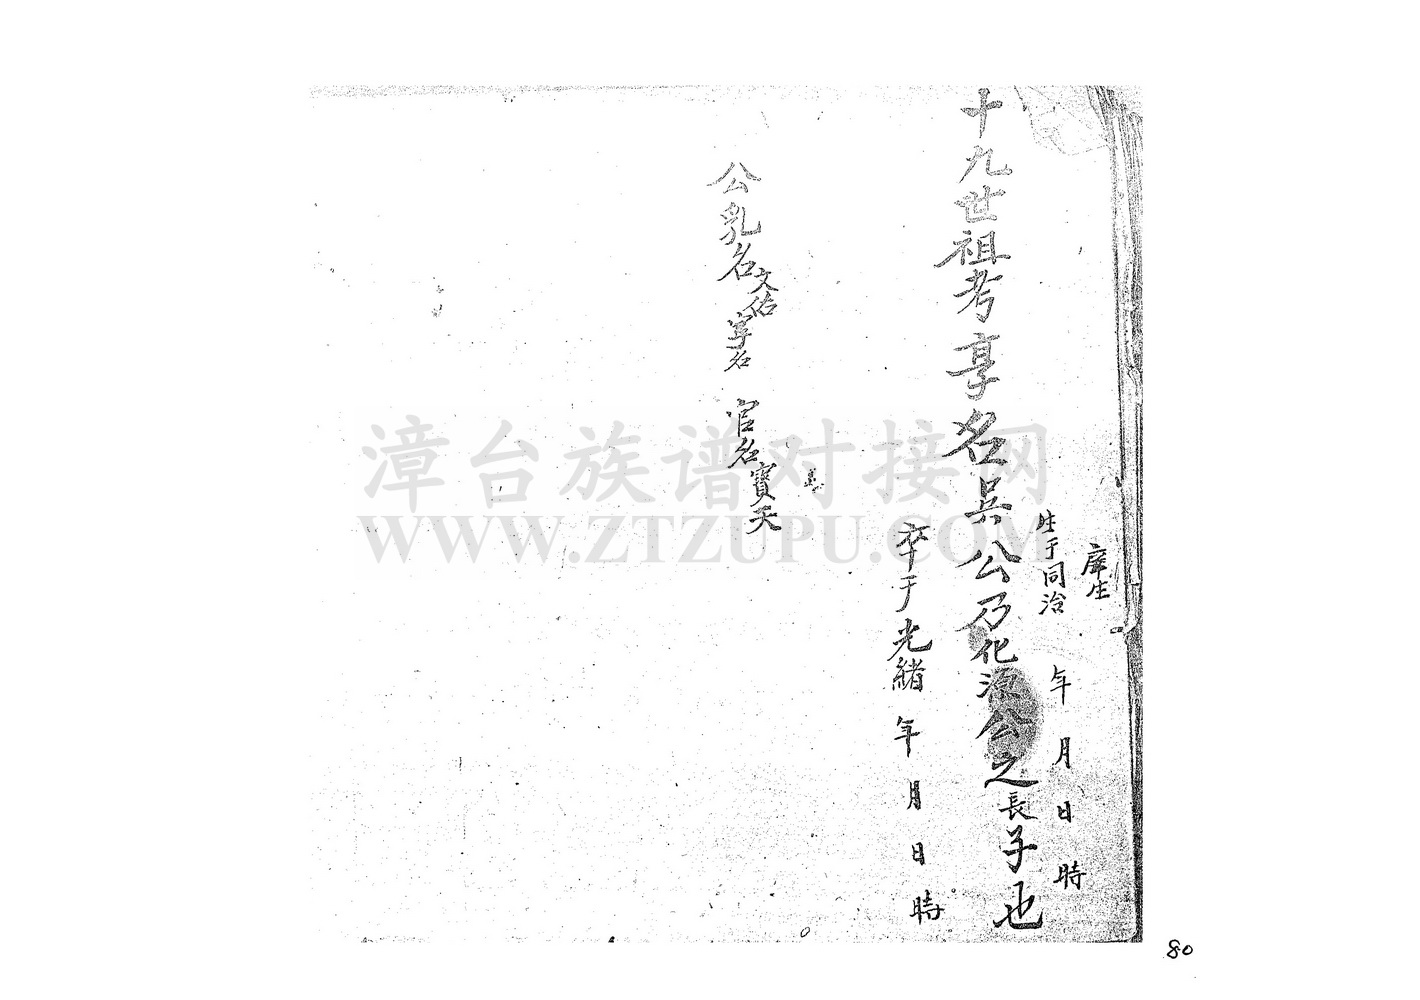 庠生
生于同治 年 月 日 時
十九世祖考享名呉公乃化源公之長子也
卒于光緒 年 月 日 時
公乳名文佑 字名 官名寶天
漳台族谱对接网
WWW.ZTZUPU.COM
80